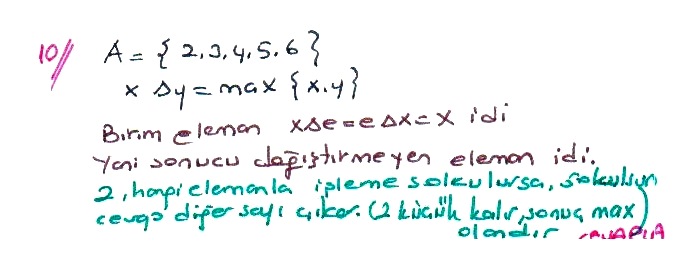 10// A = { 2,3,4,5,6 }
x Δ y = max {x,y}
Birim eleman xΔe=eΔx=x idi
Yani sonucu değiştirmeyen eleman idi.
2, hangi elemanla işleme sokulursa, sokulsun
cevap diğer sayı çıkar. (2 küçük kalır, sonuç max)
olandır CEVAP A